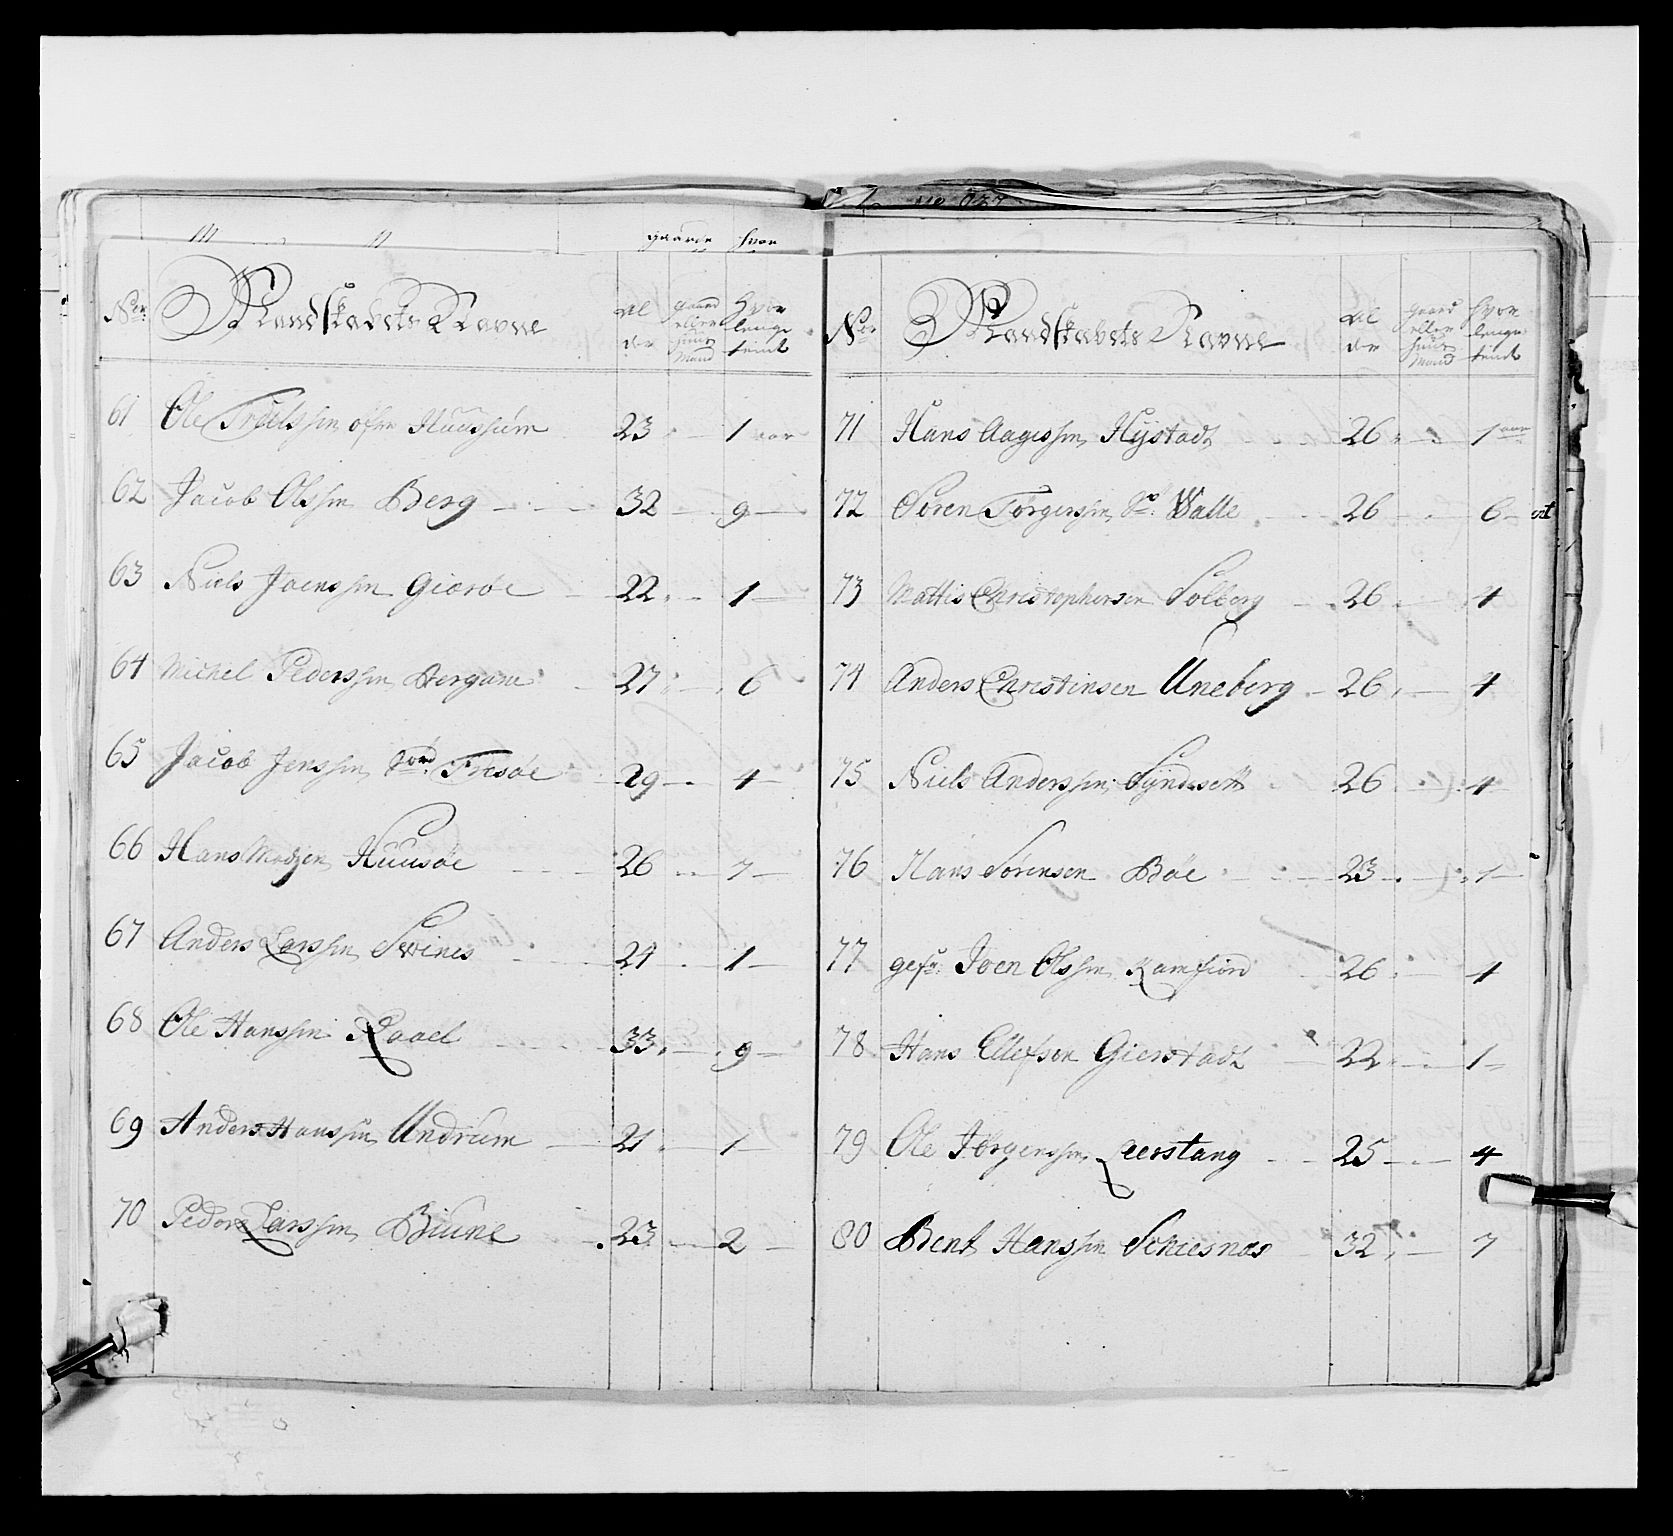 gaard hvor
No Mandskabets Navne Al der gaard eller huus Mand hvor lenge tient
61 Ole Truelssen Huussum 23 1 aar
62 Jacob Olssen Berg 32 9
63 Niels Joenssen Gieroe 22 1
64 Michel Pederssen Bergam 27 6
65 Jacob Jenssen Fresøe 29 4
66 Hans Madzen Huusøe 26 7
67 Anders Larssen Svines 24 1
68 Ole Hanssen Raael 33 9
69 Anders Hanssen Undrum 21 1
70 Peder Larssen Biune 23 2
No Mandskabets Navne Al der gaard eller huus Mand hvor lenge tient
71 Hans Aagessen Hystadt 26 1 aar
72 Søren Torgerssen Walle 26 6
73 Mattis Christophersen Solberg 26 4
74 Anders Christensen Uneberg 26 4
75 Niels Anderssen Syndsett 26 4
76 Hans Sørensen Bøe 23 1
77 gefr: Joen Olssen Kamfiord 26 4
78 Hans Ellefsen Gierstadt 22 1
79 Ole Jørgenssen Qverstang 25 4
80 Bent Hanssen Schiesnas 32 7